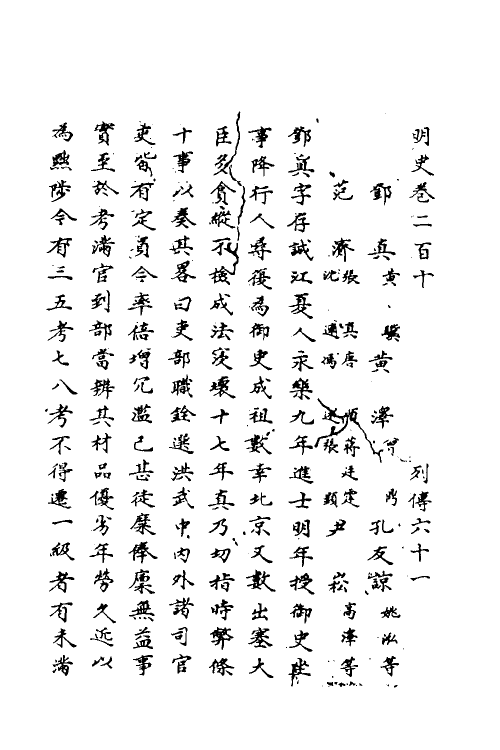 明史卷二百十 列傳六十一
鄧真 黃驥 黃澤 曾鼎 孔友諒 姚泓等
范濟 張真 唐順 蔣廷霆 尹崧 高澤等
鄧真字存誠江夏人永樂九年進士明年授御史坐
事降行人尋復為御史成祖數幸北京又數出塞大
臣多貪縱不檢成法寖壞十七年真乃切指時弊條
十事以奏其畧曰吏部職銓選洪武中內外諸司官
吏皆有定員今率倍增冗濫已甚徒糜俸廩無益事
實至於考滿官到部當辨其材品優劣年勞久近以
為黜陟今有三五考七八考不得遷一級者有未滿